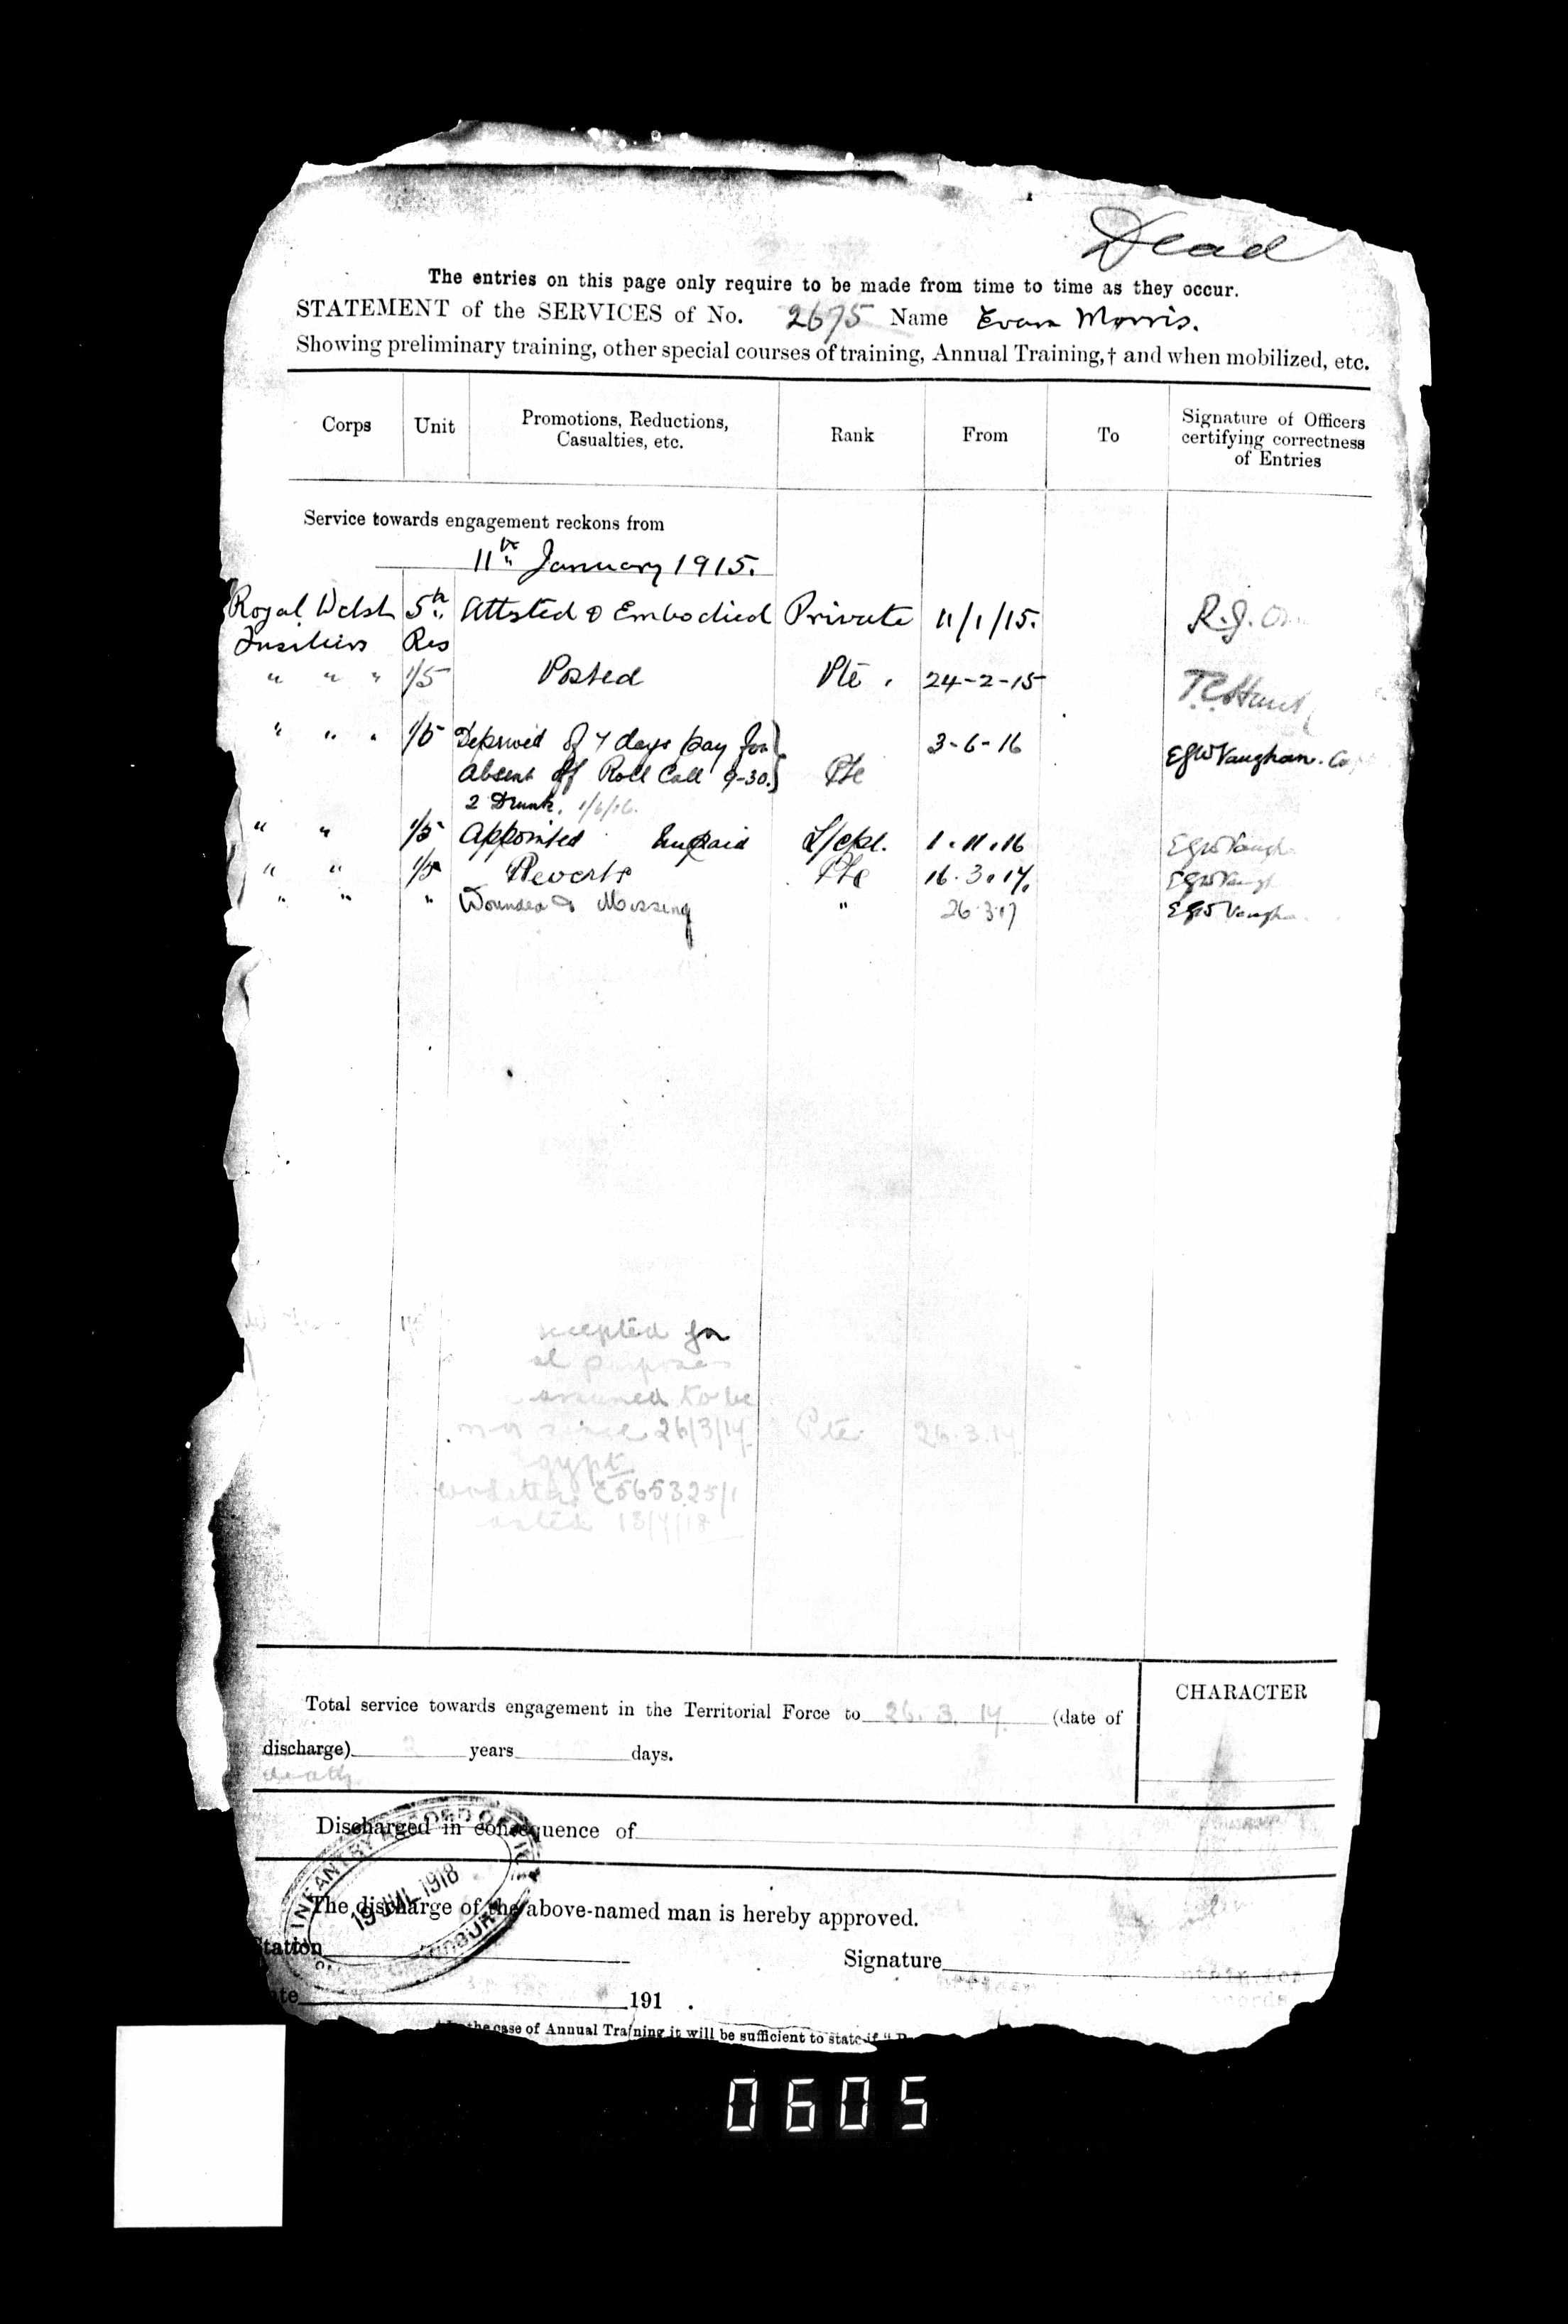 Dead
The entries on this page only require to be made from time to time as they occur.
STATEMENT of the SERVICES of No. 2675 Name Evan Morris.
Showing preliminary training, other special courses of training, Annual Training,† and when mobilized, etc.
Corps Unit Promotions, Reductions, Casualties, etc. Rank From To Signature of Officers certifying correctness of Entries
Service towards engagement reckons from
11th January 1915.
Royal Welsh 5th Attested & Embodied Private 11/1/15. R.J.
Fusiliers Res
" " " 1/5 Posted Pte. 24-2-15
" " " 1/5 Deprived of 7 days pay for 3-6-16 EGW Vaughan.
Absent off Roll Call 9-30. Pte
2 Drunk. 1/6/16.
" " 1/5 Appointed Unpaid L/cpl. 1.11.16 EGW Vaugh
" " 1/5 Reverts Pte 16.3.17. EGW
" " " Wounded & Missing " 26.3.17 EGW Vaugha
ccepted for
al purposes
assumed to be
since 26/3/17 Pte 26.3.17
gypt
C565325/1
dated 13/7/18
Total service towards engagement in the Territorial Force to 26.3.17 (date of
discharge) 2 years days.
death
CHARACTER
Discharged in consequence of
INFANTRY RECORD OFFICE
19 JUL 1918
The discharge of the above-named man is hereby approved.
Station
Signature
ate 191 .
the case of Annual Training it will be sufficient to state if
0605